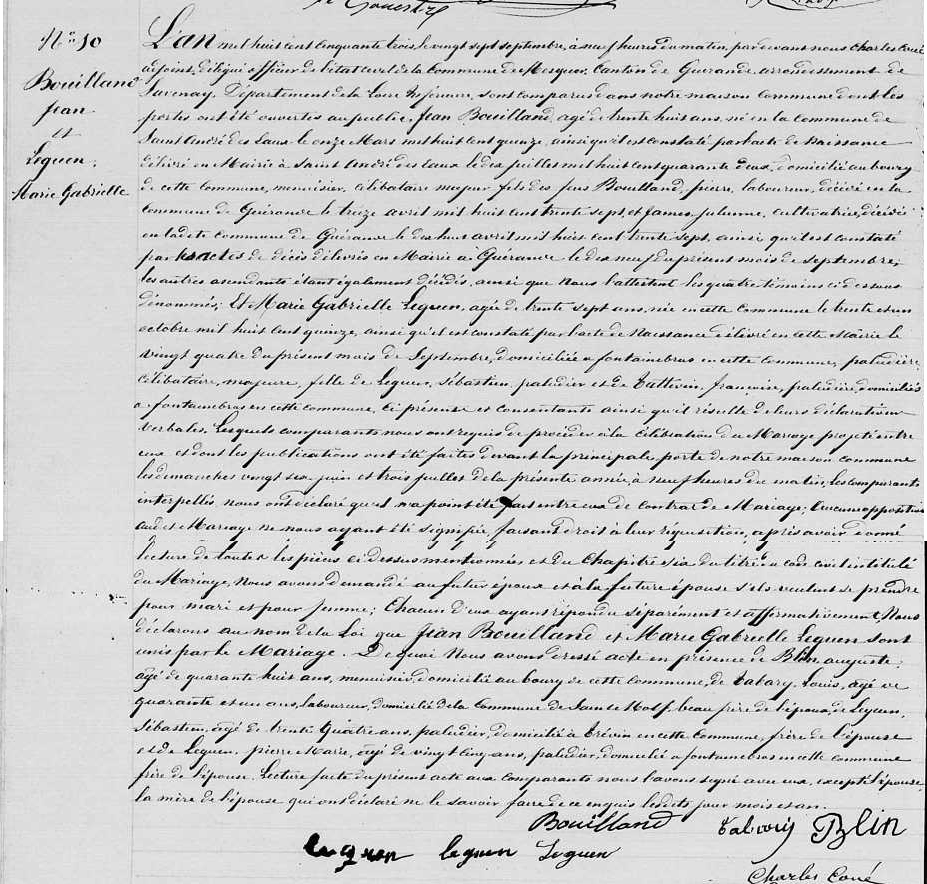 Nº 50
Bouilland
Jean
et
Leguen,
Marie Gabrielle
L'an mil huit cent cinquante trois, le vingt sept septembre, à neuf heures du matin, par devant nous Charles Coué
adjoint délégué officier de l'état civil de la Commune de Mesquer, Canton de Guérande, arrondissement de
Savenay, Département de la Loire Inférieure, sont comparus dans notre maison Commune dont les
portes ont été ouvertes au public, Jean Bouilland, agé de trente huit ans, né en la Commune de
Saint André des Eaux le onze Mars mil huit cent quinze, ainsi qu'il est constaté par l'acte de Naissance
délivré en Mairie à Saint André des Eaux le dix juillet mil huit cent quarante deux, domicilié au bourg
de cette Commune, menuisier, célibataire majeur fils des feus Bouilland, pierre, laboureur, décédé en la
Commune de Guérande le treize avril mil huit cent trente sept, et James Julienne, cultivatrice, décédée
en ladite Commune de Guérande le dix huit avril mil huit cent trente sept, ainsi qu'il est constaté
par les actes de décès délivrés en Mairie à Guérande le dix neuf du présent mois de septembre,
les autres ascendants étant également décédés, ainsi que nous l'attestent les quatre témoins ci dessous
dénommés; Et Marie Gabrielle Leguen, agée de trente sept ans, née en cette Commune le trente et un
octobre mil huit cent quinze, ainsi qu'il est constaté par l'acte de Naissance délivré en cette Mairie le
vingt quatre du présent mois de Septembre, domiciliée a fontainebras en cette Commune, paludière,
célibataire, majeure, fille de Leguen, Sébastien, paludier et de Tattevin, françoise, paludière, domiciliés
a fontainebras en cette Commune, ci présens et consentants ainsi qu'il résulte de leurs déclarations
verbales. Lesquels comparants nous ont requis de procéder à la célébration du Mariage projeté entre
eux et dont les publications ont été faites devant la principale porte de notre maison commune
les dimanches vingt six juin et trois juillet de la présente année, à neuf heures du matin, les comparants
interpellés nous ont déclaré qu'il n'a point été fait entre eux de contrat de Mariage; Aucune opposition
audit Mariage ne nous ayant été signifiée, faisant droit à leur réquisition, après avoir donné
lecture de toutes les pièces ci dessus mentionnées et du Chapitre six du titre du code civil intitulé
du Mariage, Nous avons demandé au futur époux et à la future épouse s'ils veulent se prendre
pour mari et pour femme; Chacun d'eux ayant répondu séparément et affirmativement, Nous
déclarons au nom de la Loi que Jean Bouilland et Marie Gabrielle Leguen sont
unis par le Mariage. De quoi Nous avons dressé acte en présence de Blin, auguste,
agé de quarante huit ans, menuisier, domicilié au bourg de cette commune, de Tabary, Louis, agé de
quarante et un ans, laboureur, domicilié de la Commune de Sainte Molf, beau frère de l'époux, de Leguen,
Sébastien, agé de trente quatre ans, paludier, domicilié à Trévin en cette Commune, frère de l'épouse
et de Leguen, pierre Marie, agé de vingt cinq ans, paludier, domicilié a fontainebras en cette commune
frère de l'épouse. Lecture faite du présent acte aux comparants nous l'avons signé avec eux, excepté l'épouse,
la mère de l'épouse qui ont déclaré ne le savoir faire de ce enquis lesdits jour mois et an.
Bouilland Blin
leguen leguen Leguen
Charles Coué